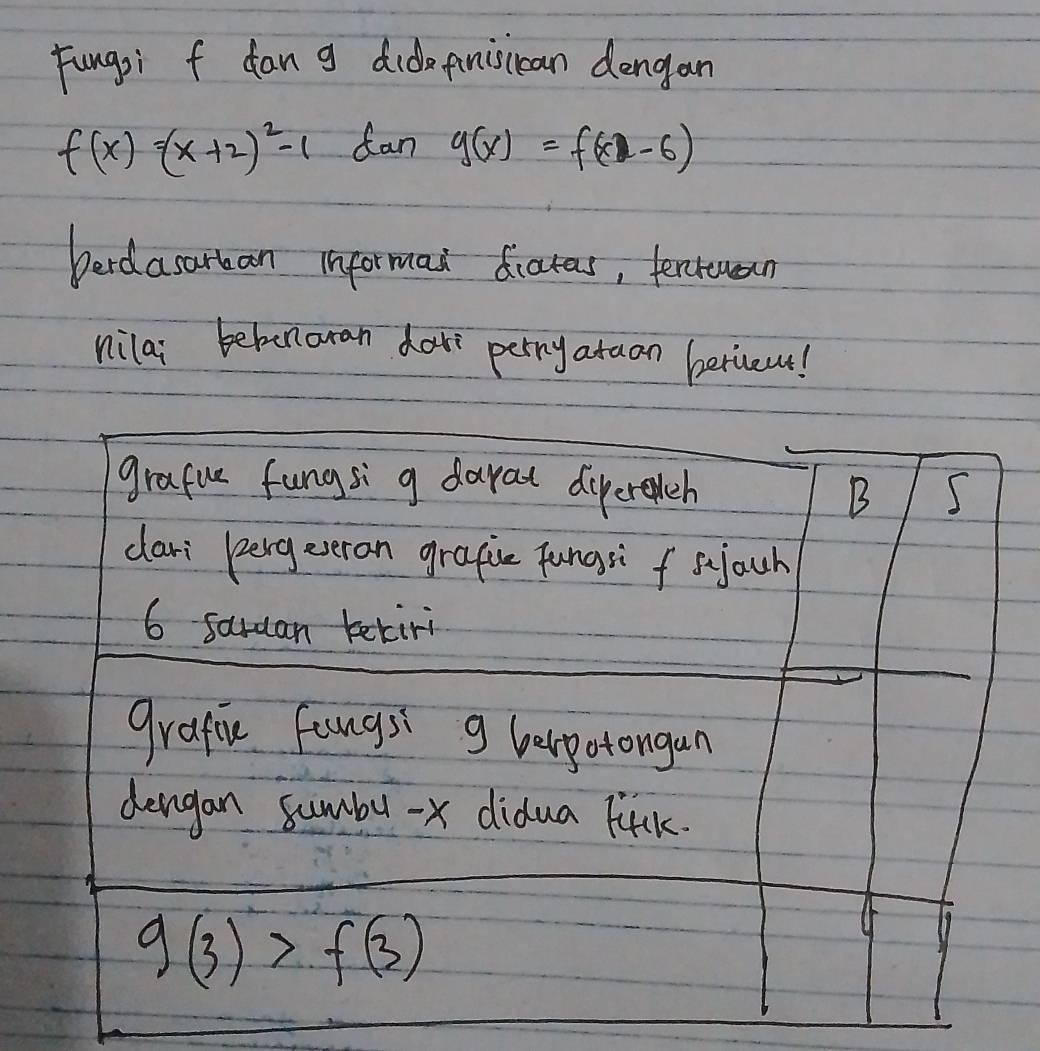 Fungsi f dan g didefinisikan dengan
f(x) = (x+2)²-1 dan g(x) = f(x-6)
berdasarkan informasi diatas, tentukan
nilai kebenaran dari pernyataan berikut!
grafik fungsi g dapat diperoleh B S
dari pergeseran grafik fungsi f sejauh
6 satuan kekiri
grafik fungsi g berpotongan
dengan sumbu -x didua titik.
g(3) > f(3)